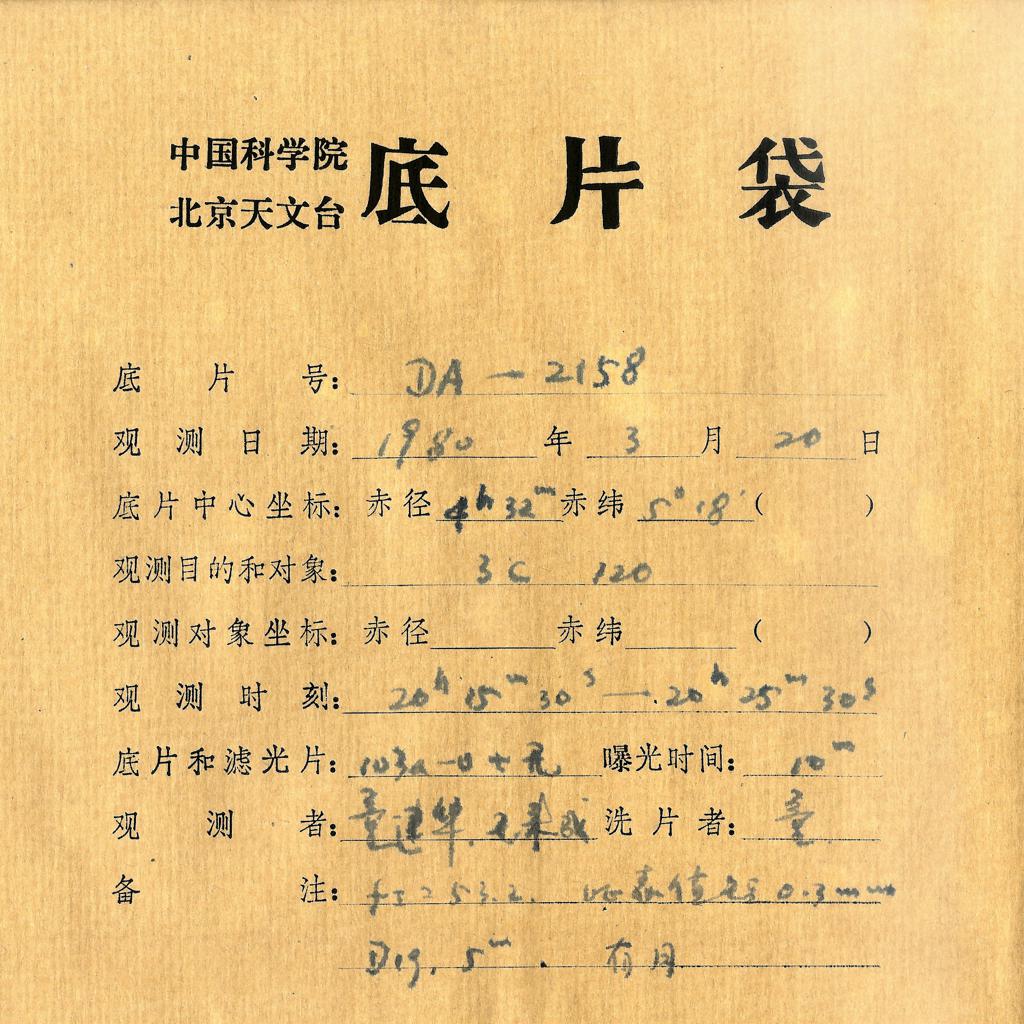 中国科学院
北京天文台
底片袋
底片号: DA-2158
观测日期: 1980年3月20日
底片中心坐标: 赤径4h32m赤纬5°18′( )
观测目的和对象: 3C 120
观测对象坐标: 赤径 赤纬 ( )
观测时刻: 20h15m30s—20h25m30s
底片和滤光片: 103a-O+无 曝光时间: 10m
观测者: 童建华. 洗片者: 童
备注: 53.2. 0.3mm
D19. 5m. 有月